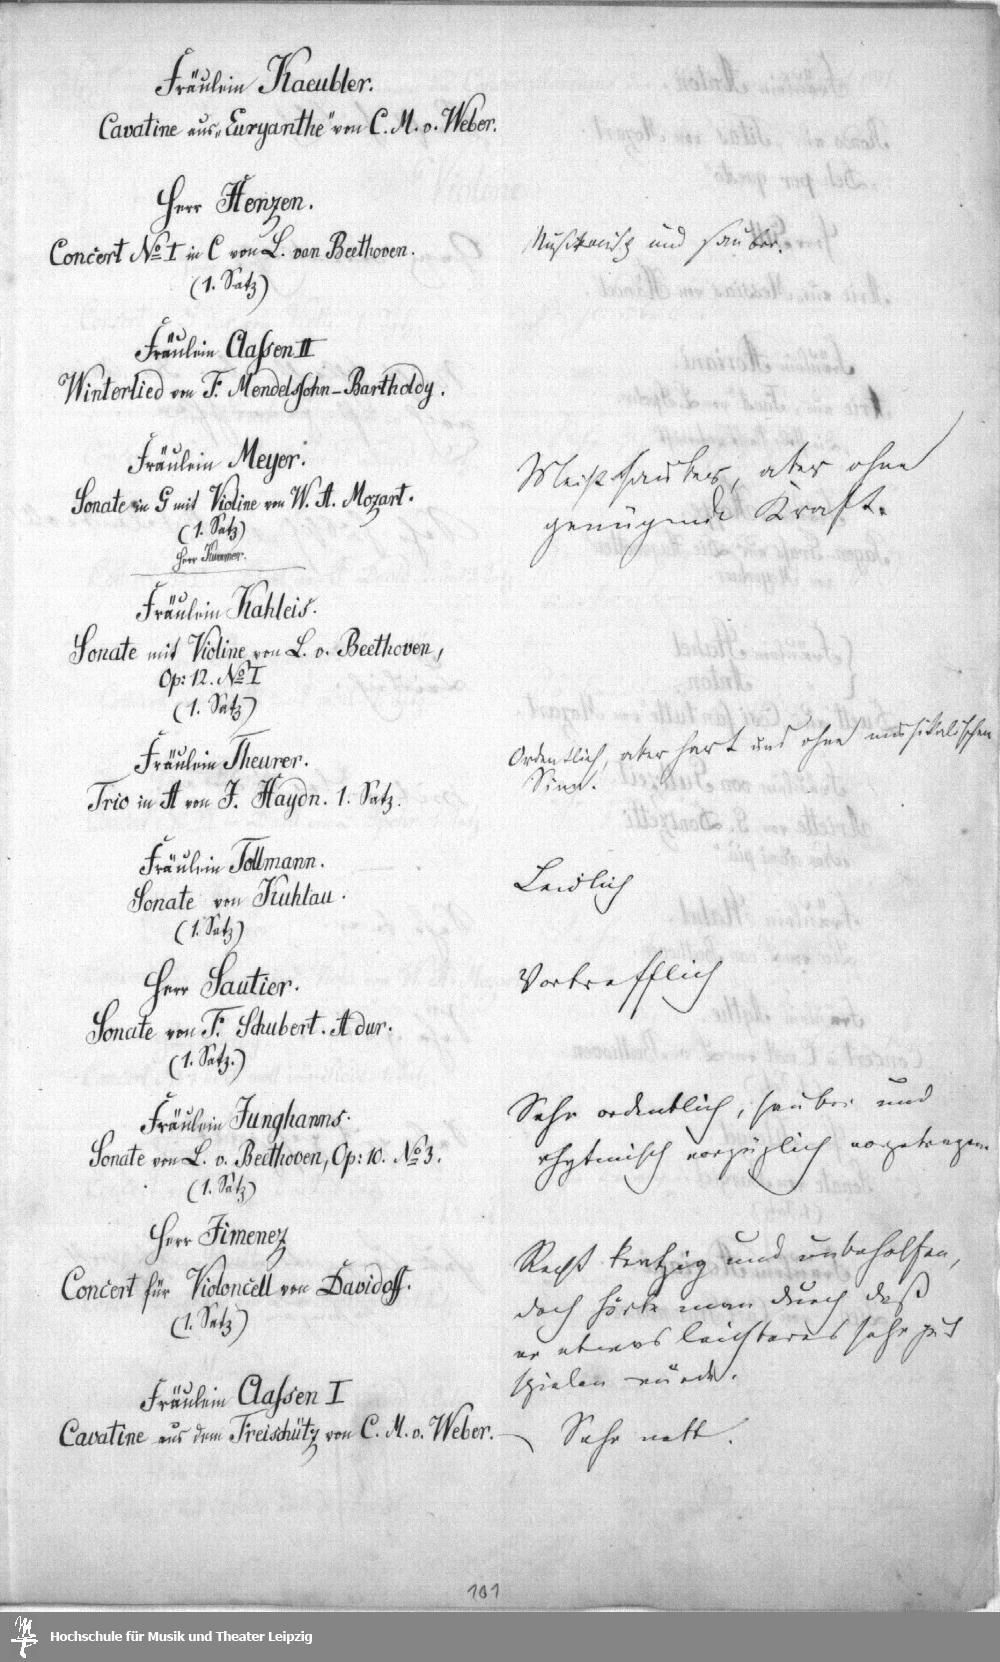 Fräulein Kaeubler.
Cavatine aus „Euryanthe" von C. M. v. Weber.
Herr Henzen.
Concert No I in C von L. van Beethoven.
(1. Satz)
Musikalisch und sauber.
Fräulein Classen II
Winterlied von F. Mendelssohn-Bartholdy.
Fräulein Meyer.
Sonate in G mit Violine von W. A. Mozart.
(1. Satz)
Herr Kummer.
Meist sauber, aber ohne
genügende Kraft.
Fräulein Kahleis.
Sonate mit Violine von L. v. Beethoven,
Op: 12. No I
(1. Satz)
Fräulein Theurer.
Trio in A von J. Haydn. 1. Satz.
Ordentlich, aber hart und ohne musikalischen
Sinn.
Fräulein Tollmann.
Sonate von Kuhlau.
(1. Satz)
Leidlich
Herr Sautier.
Sonate von F. Schubert. A dur.
(1. Satz.)
Vortrefflich
Fräulein Junghanns.
Sonate von L. v. Beethoven, Op: 10. No 3.
(1. Satz)
Sehr ordentlich, sauber und
rhytmisch vorzüglich vorgetragen
Herr Jimenez
Concert für Violoncell von Davidoff.
(1. Satz)
Recht und unbeholfen,
doch hörte man durch daß
er etwas leichteres sehr gut
spielen würde.
Fräulein Classen I
Cavatine aus dem Freischütz von C. M. v. Weber.
Sehr nett.
101
Hochschule für Musik und Theater Leipzig